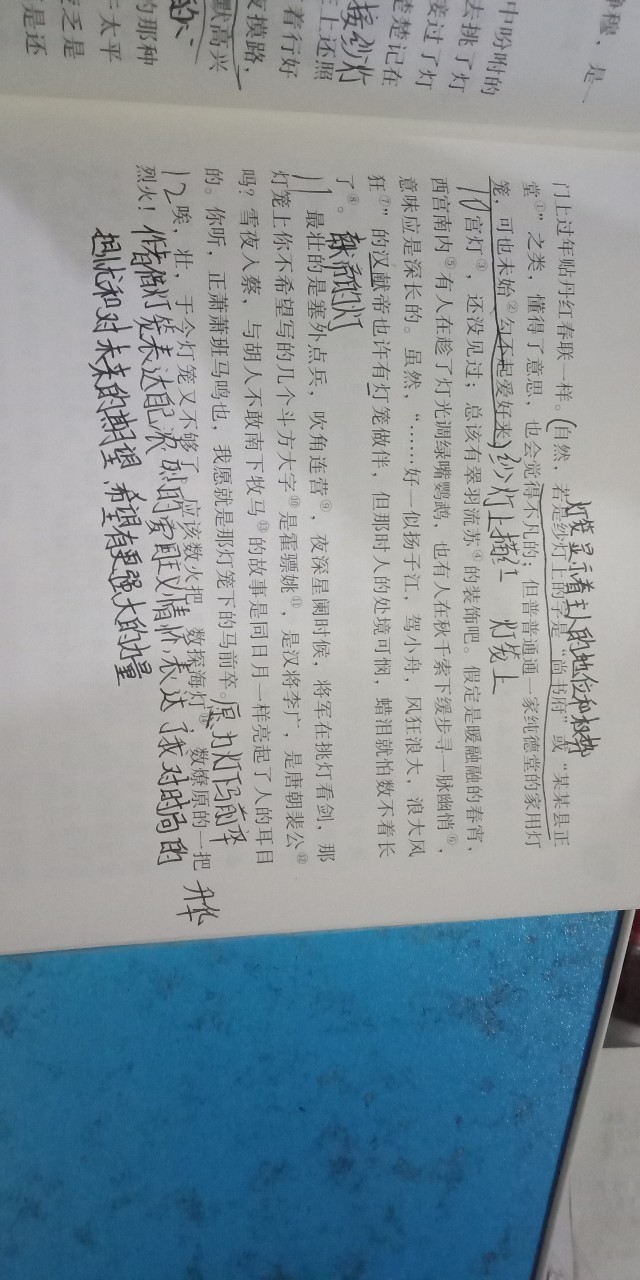 静穆，是
中吩咐的
去挑了灯
接过了灯
楚楚记在
主上还照
接纱灯
着行好
支摸路，
默高兴
的那种
太平
乏是
是还
灯笼显示着主人的地位和权势
门上过年贴丹红春联一样。（自然，若是纱灯上的字是“尚书府”或“某某县正
堂①”之类，懂得了意思，也会觉得不凡的；但普普通通一家纯德堂的家用灯
笼，可也未始②勾不起爱好来）纱灯上描红 灯笼上
10宫灯③，还没见过；总该有翠羽流苏④的装饰吧。假定是暖融融的春宵，
西宫南内⑤有人在趁了灯光调绿嘴鹦鹉，也有人在秋千索下缓步寻一脉幽悄⑥，
意味应是深长的。虽然，“……好一似扬子江，驾小舟，风狂浪大，浪大风
狂⑦”的汉献帝也许有灯笼做伴，但那时人的处境可悯，蜡泪就怕数不着长
了⑧。 献帝的灯
11最壮的是塞外点兵，吹角连营⑨，夜深星阑时候，将军在挑灯看剑，那
灯笼上你不希望写的几个斗方大字⑩是霍骠姚⑪，是汉将李广，是唐朝裴公⑫
吗？雪夜入蔡，与胡人不敢南下牧马⑬的故事是同日月一样亮起了人的耳目
的。你听，正萧萧班马鸣也，我愿就是那灯笼下的马前卒。愿为灯下马前卒
12唉，壮，于今灯笼又不够了。应该数火把，数探海灯⑭，数燎原的一把
烈火！作者借灯笼表达自己浓烈的爱国主义情怀，表达了我对时局的
担忧和对未来的期望，希望有更强大的力量
升华